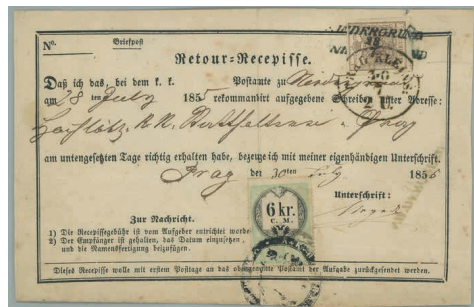 Nº. Briefpost
NIEDERGRUND
Retour-Recepisse.
Daß ich das, bei dem k. k. Postamte zu Niedergrund
am 28 ten July 1855 rekommandirt aufgegebene Schreiben unter Adresse:
K. K. Prag
am untengesetzten Tage richtig erhalten habe, bezeuge ich mit meiner eigenhändigen Unterschrift.
Prag den 30ten July 1855
Unterschrift:
6 kr.
C. M.
Zur Nachricht.
1) Die Recepissegebühr ist vom Aufgeber entrichtet worden
2) Der Empfänger ist gehalten, das Datum einzusetzen,
und die Namensfertigung beizufügen.
Dieses Recepisse wolle mit erstem Postage an das obengenannte Postamt der Aufgabe zurückgesendet werden.